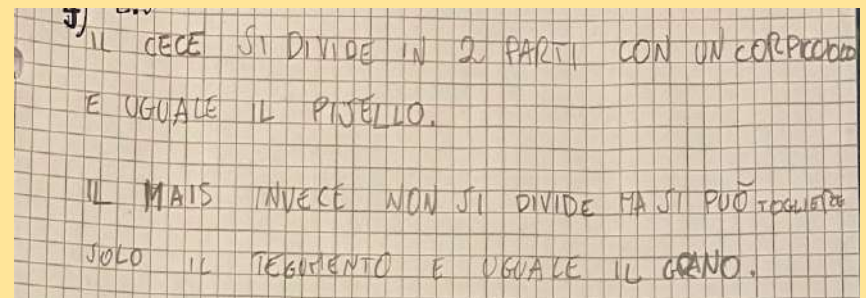 5)
IL CECE SI DIVIDE IN 2 PARTI CON UN
E UGUALE IL PISELLO.
IL MAIS INVECE NON SI DIVIDE MA SI PUÒ TOGLIERE
SOLO IL TEGUMENTO E UGUALE IL GRANO.